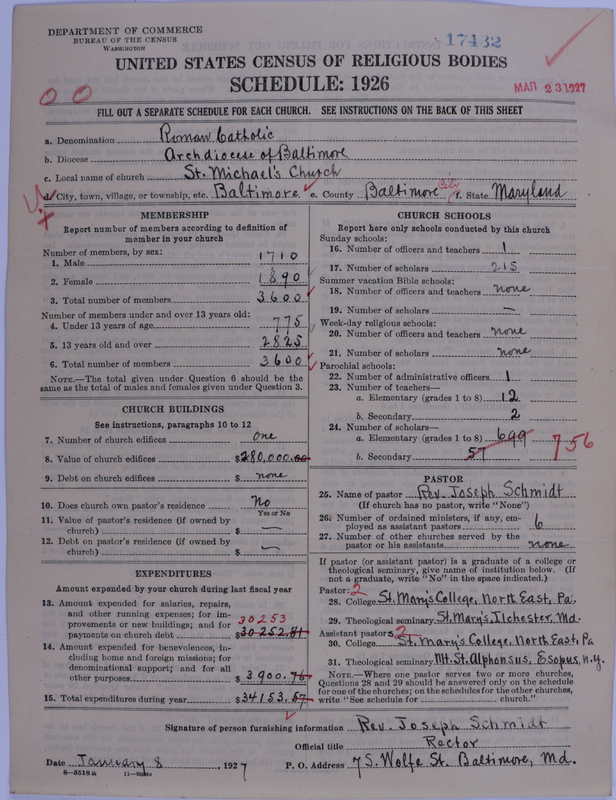 DEPARTMENT OF COMMERCE
BUREAU OF THE CENSUS
WASHINGTON
17432
UNITED STATES CENSUS OF RELIGIOUS BODIES
SCHEDULE: 1926
MAR 23 1927
FILL OUT A SEPARATE SCHEDULE FOR EACH CHURCH. SEE INSTRUCTIONS ON THE BACK OF THIS SHEET
a. Denomination Roman Catholic
b. Diocese Archdiocese of Baltimore
c. Local name of church St. Michael's Church
d. City, town, village, or township, etc. Baltimore e. County Baltimore City f. State Maryland
MEMBERSHIP
Report number of members according to definition of
member in your church
Number of members, by sex:
1. Male 1710
2. Female 1890
3. Total number of members 3600
Number of members under and over 13 years old:
4. Under 13 years of age 775
5. 13 years old and over 2825
6. Total number of members 3600
NOTE.—The total given under Question 6 should be the
same as the total of males and females given under Question 3.
CHURCH BUILDINGS
See instructions, paragraphs 10 to 12
7. Number of church edifices one
8. Value of church edifices $280,000.00
9. Debt on church edifices $ none
10. Does church own pastor's residence No
Yes or No
11. Value of pastor's residence (if owned by
church) $ —
12. Debt on pastor's residence (if owned by
church) $ —
EXPENDITURES
Amount expended by your church during last fiscal year
13. Amount expended for salaries, repairs,
and other running expenses; for im-
provements or new buildings; and for 30253
payments on church debt $30252.81
14. Amount expended for benevolences, in-
cluding home and foreign missions; for
denominational support; and for all
other purposes $3900.76
15. Total expenditures during year $34153.57
CHURCH SCHOOLS
Report here only schools conducted by this church
Sunday schools:
16. Number of officers and teachers 1
17. Number of scholars 215
Summer vacation Bible schools:
18. Number of officers and teachers none
19. Number of scholars —
Week-day religious schools:
20. Number of officers and teachers none
21. Number of scholars none
Parochial schools:
22. Number of administrative officers 1
23. Number of teachers—
a. Elementary (grades 1 to 8) 12
b. Secondary 2
24. Number of scholars—
a. Elementary (grades 1 to 8) 699 756
b. Secondary 57
PASTOR
25. Name of pastor Rev. Joseph Schmidt
(If church has no pastor, write "None")
26. Number of ordained ministers, if any, em-
ployed as assistant pastors 6
27. Number of other churches served by the
pastor or his assistants none
If pastor (or assistant pastor) is a graduate of a college or
theological seminary, give name of institution below. (If
not a graduate, write "No" in the space indicated.)
Pastor: 2
28. College St. Mary's College, North East, Pa.
29. Theological seminary St. Mary's, Ilchester, Md.
Assistant pastors 2
30. College St. Mary's College, North East, Pa
31. Theological seminary Mt. St. Alphonsus, Esopus, N.Y.
NOTE.—Where one pastor serves two or more churches,
Questions 28 and 29 should be answered only on the schedule
for one of the churches; on the schedules for the other churches,
write "See schedule for church."
Signature of person furnishing information Rev. Joseph Schmidt
Official title Rector
Date January 8, 1927 P. O. Address 7 S. Wolfe St. Baltimore, Md.
8—5518 a